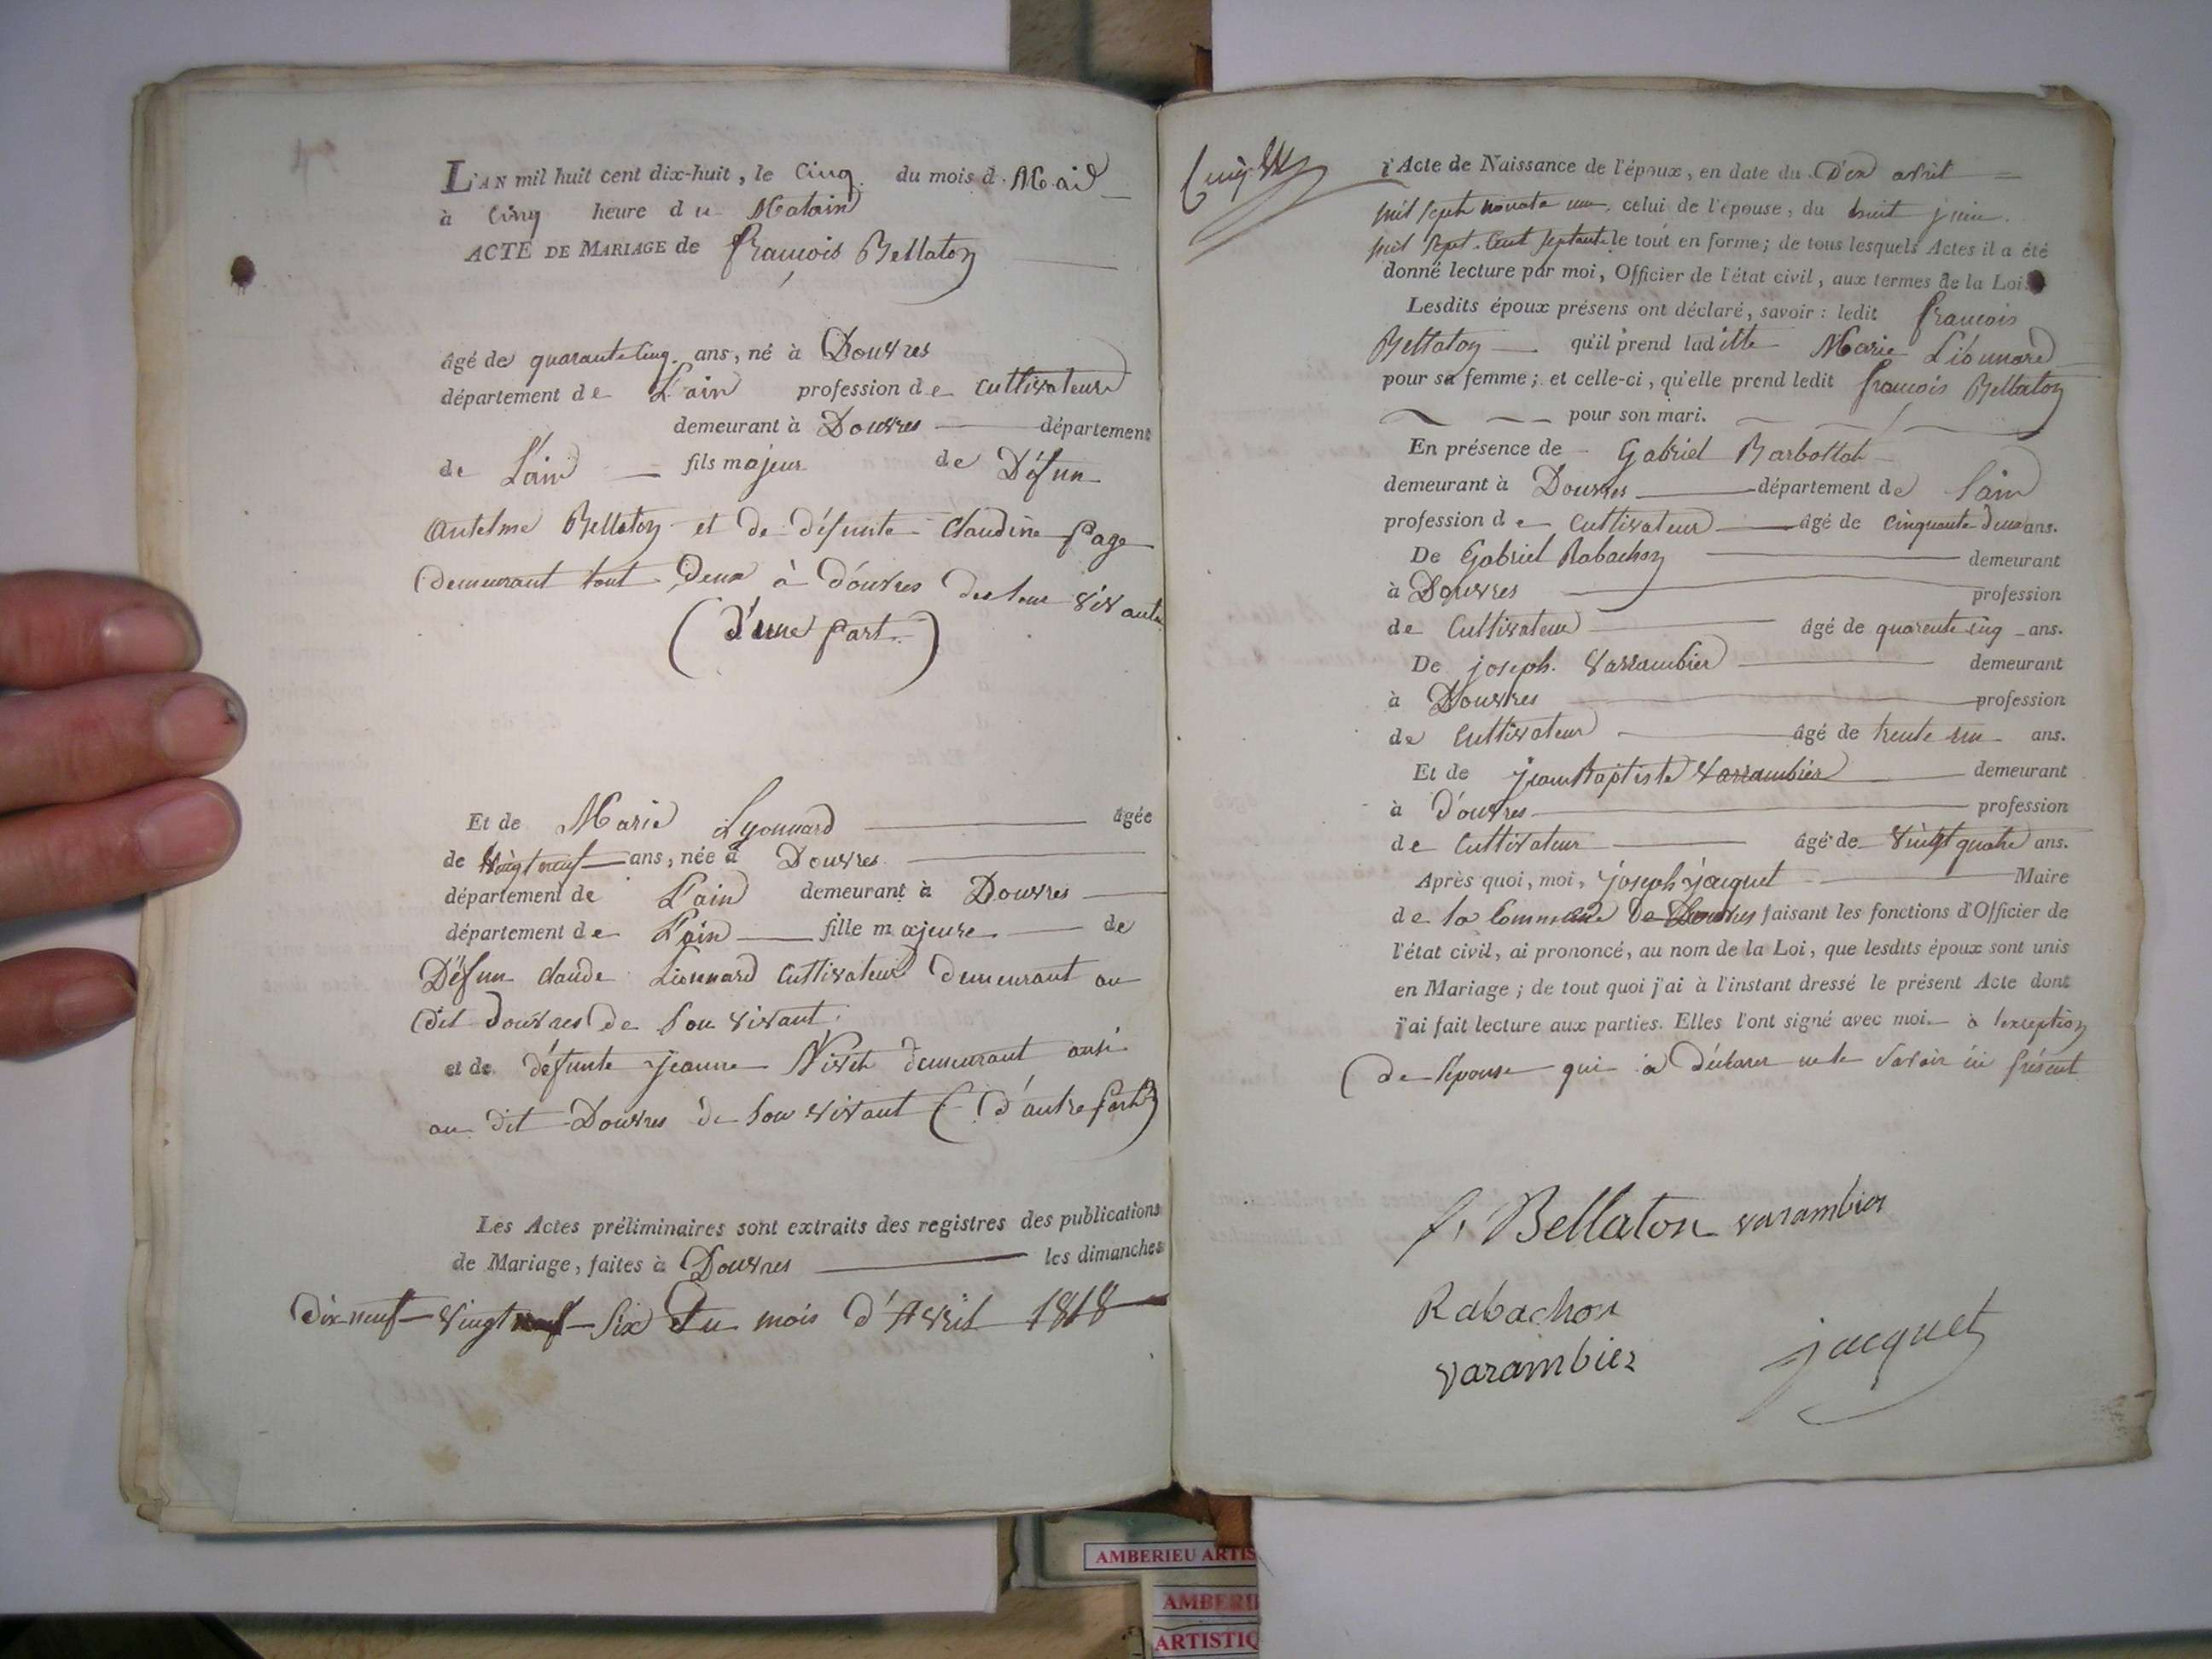 L'AN mil huit cent dix-huit, le Cinq du mois d. Mai
à Cinq heure du Matain
ACTE DE MARIAGE de francois Bellaton
âgé de quarante Cinq ans, né à Douvres
département de L'ain profession de Cultivateur
demeurant à Douvres département
de L'ain fils majeur de Défun
Antelme Bellaton et de défunte Claudine Page
demeurant tout Deux à Douvres de leur vivant
(d'une part.)
Et de Marie Lyonnard âgée
de vingt neuf ans, née à Douvres
département de L'ain demeurant à Douvres
département de L'ain fille majeure de
Défun claude Lionnard Cultivateur demeurant au
dit Douvres de son vivant.
et de défunte jeanne Nivet demeurant ausi
au dit Douvres de son vivant (d'autre part)
Les Actes préliminaires sont extraits des registres des publications
de Mariage, faites à Douvres les dimanches
Dix neuf vingt six du mois d'Avril 1818
l'Acte de Naissance de l'époux, en date du Dix avril
mil sept, celui de l'épouse, du huit juin
mil sept. Cent septante le tout en forme; de tous lesquels Actes il a été
donné lecture par moi, Officier de l'état civil, aux termes de la Loi.
Lesdits époux présens ont déclaré, savoir: ledit francois
Bellaton qu'il prend laditte Marie Lionnard
pour sa femme; et celle-ci, qu'elle prend ledit francois Bellaton
pour son mari.
En présence de Gabriel Barbollat
demeurant à Douvres département de l'ain
profession de Cultivateur âgé de Cinquante deux ans.
De Gabriel Rabachon demeurant
à Douvres profession
de Cultivateur âgé de quarente cinq ans.
De joseph. Varrambier demeurant
à Douvres profession
de Cultivateur âgé de trente un ans.
Et de jean Baptiste Varrambier demeurant
à Douvres profession
de Cultivateur âgé de vingt quatre ans.
Après quoi, moi, joseph jacquet Maire
de la Commune de Douvres faisant les fonctions d'Officier de
l'état civil, ai prononcé, au nom de la Loi, que lesdits époux sont unis
en Mariage; de tout quoi j'ai à l'instant dressé le présent Acte dont
j'ai fait lecture aux parties. Elles l'ont signé avec moi. à lexception
de lepouse qui à déclarer ne le savoir présent
f. Bellaton varambier
Rabachon
varambier jacquet
AMBERIEU ARTIS
AMBERI
ARTISTIQ